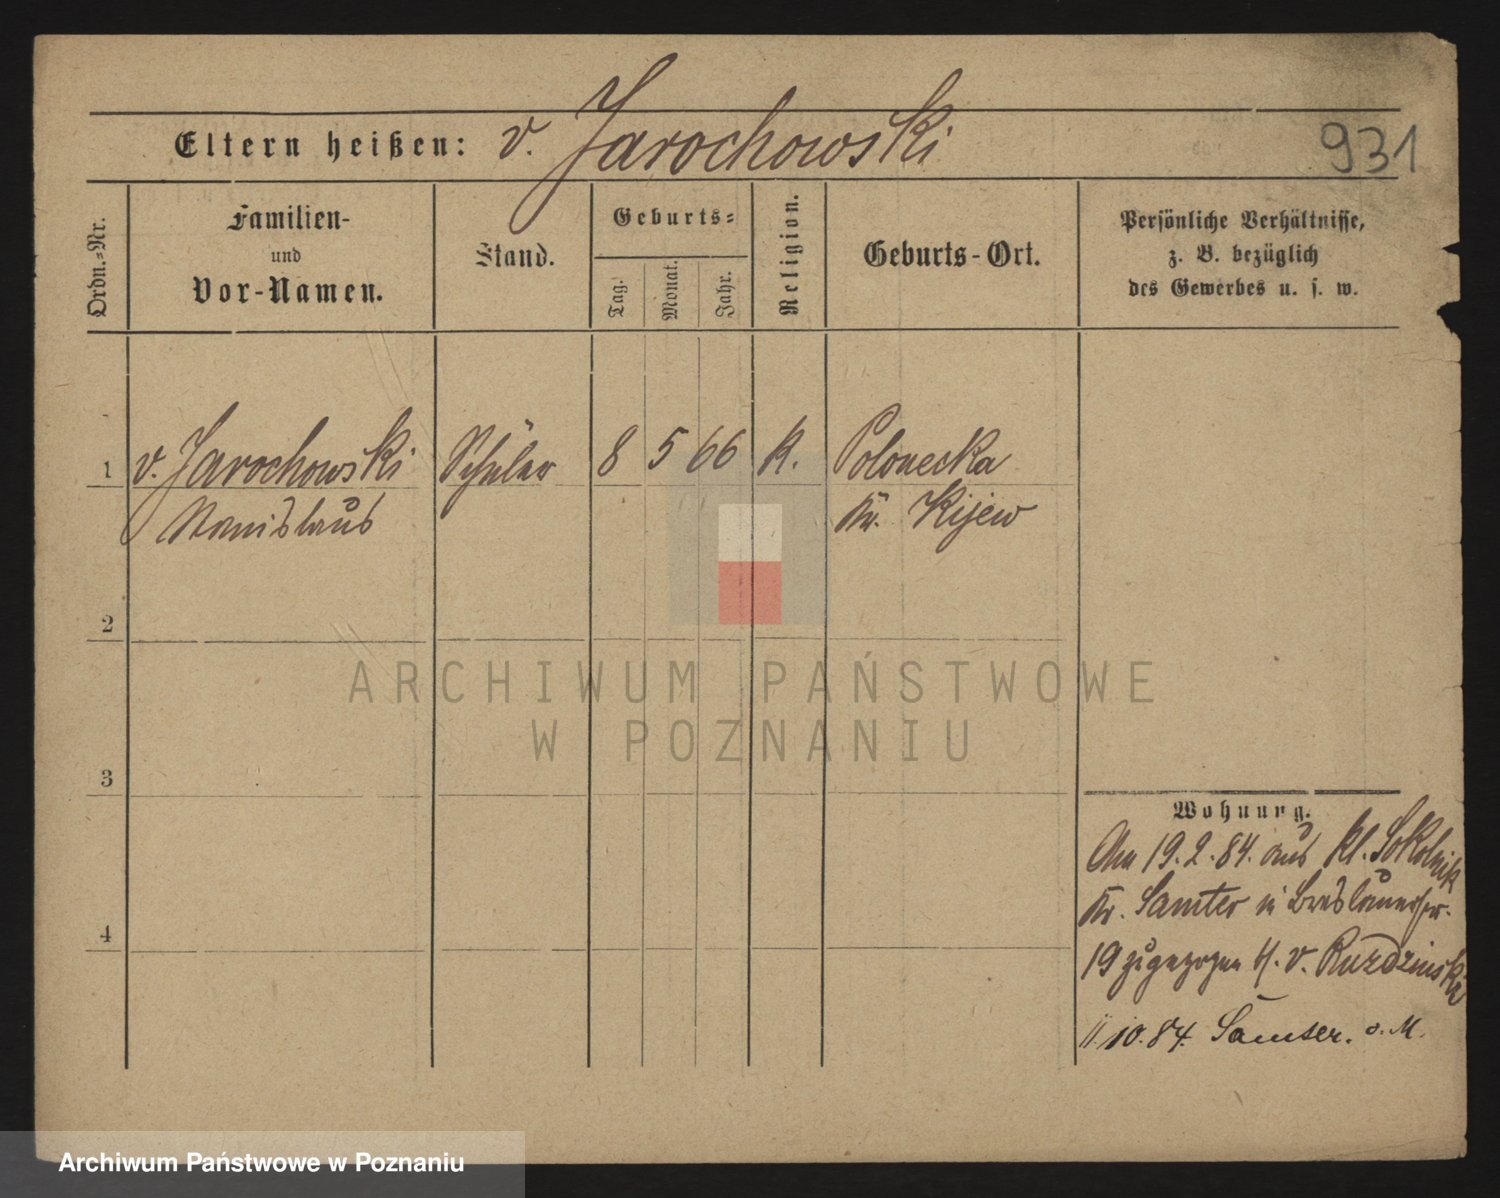 Eltern heißen: v. Jarochowski
931
Ordn.-Nr.
Familien-
und
Vor-Namen.
Stand.
Geburts-
Tag.
Monat.
Jahr.
Religion.
Geburts-Ort.
Persönliche Verhältnisse,
z. B. bezüglich
des Gewerbes u. s. w.
1 v. Jarochowski Schüler 8 5 66 K. Polonecka
Stanislaus Kr. Kijew
2
3
4
Wohnung.
Am 19.2.84. aus Kl. Sokolnik
Kr. Samter in Breslauerstr.
19 zugezogen b. v. Rudzinski
11.10.84. Samter. o. M.
ARCHIWUM PAŃSTWOWE
W POZNANIU
Archiwum Państwowe w Poznaniu